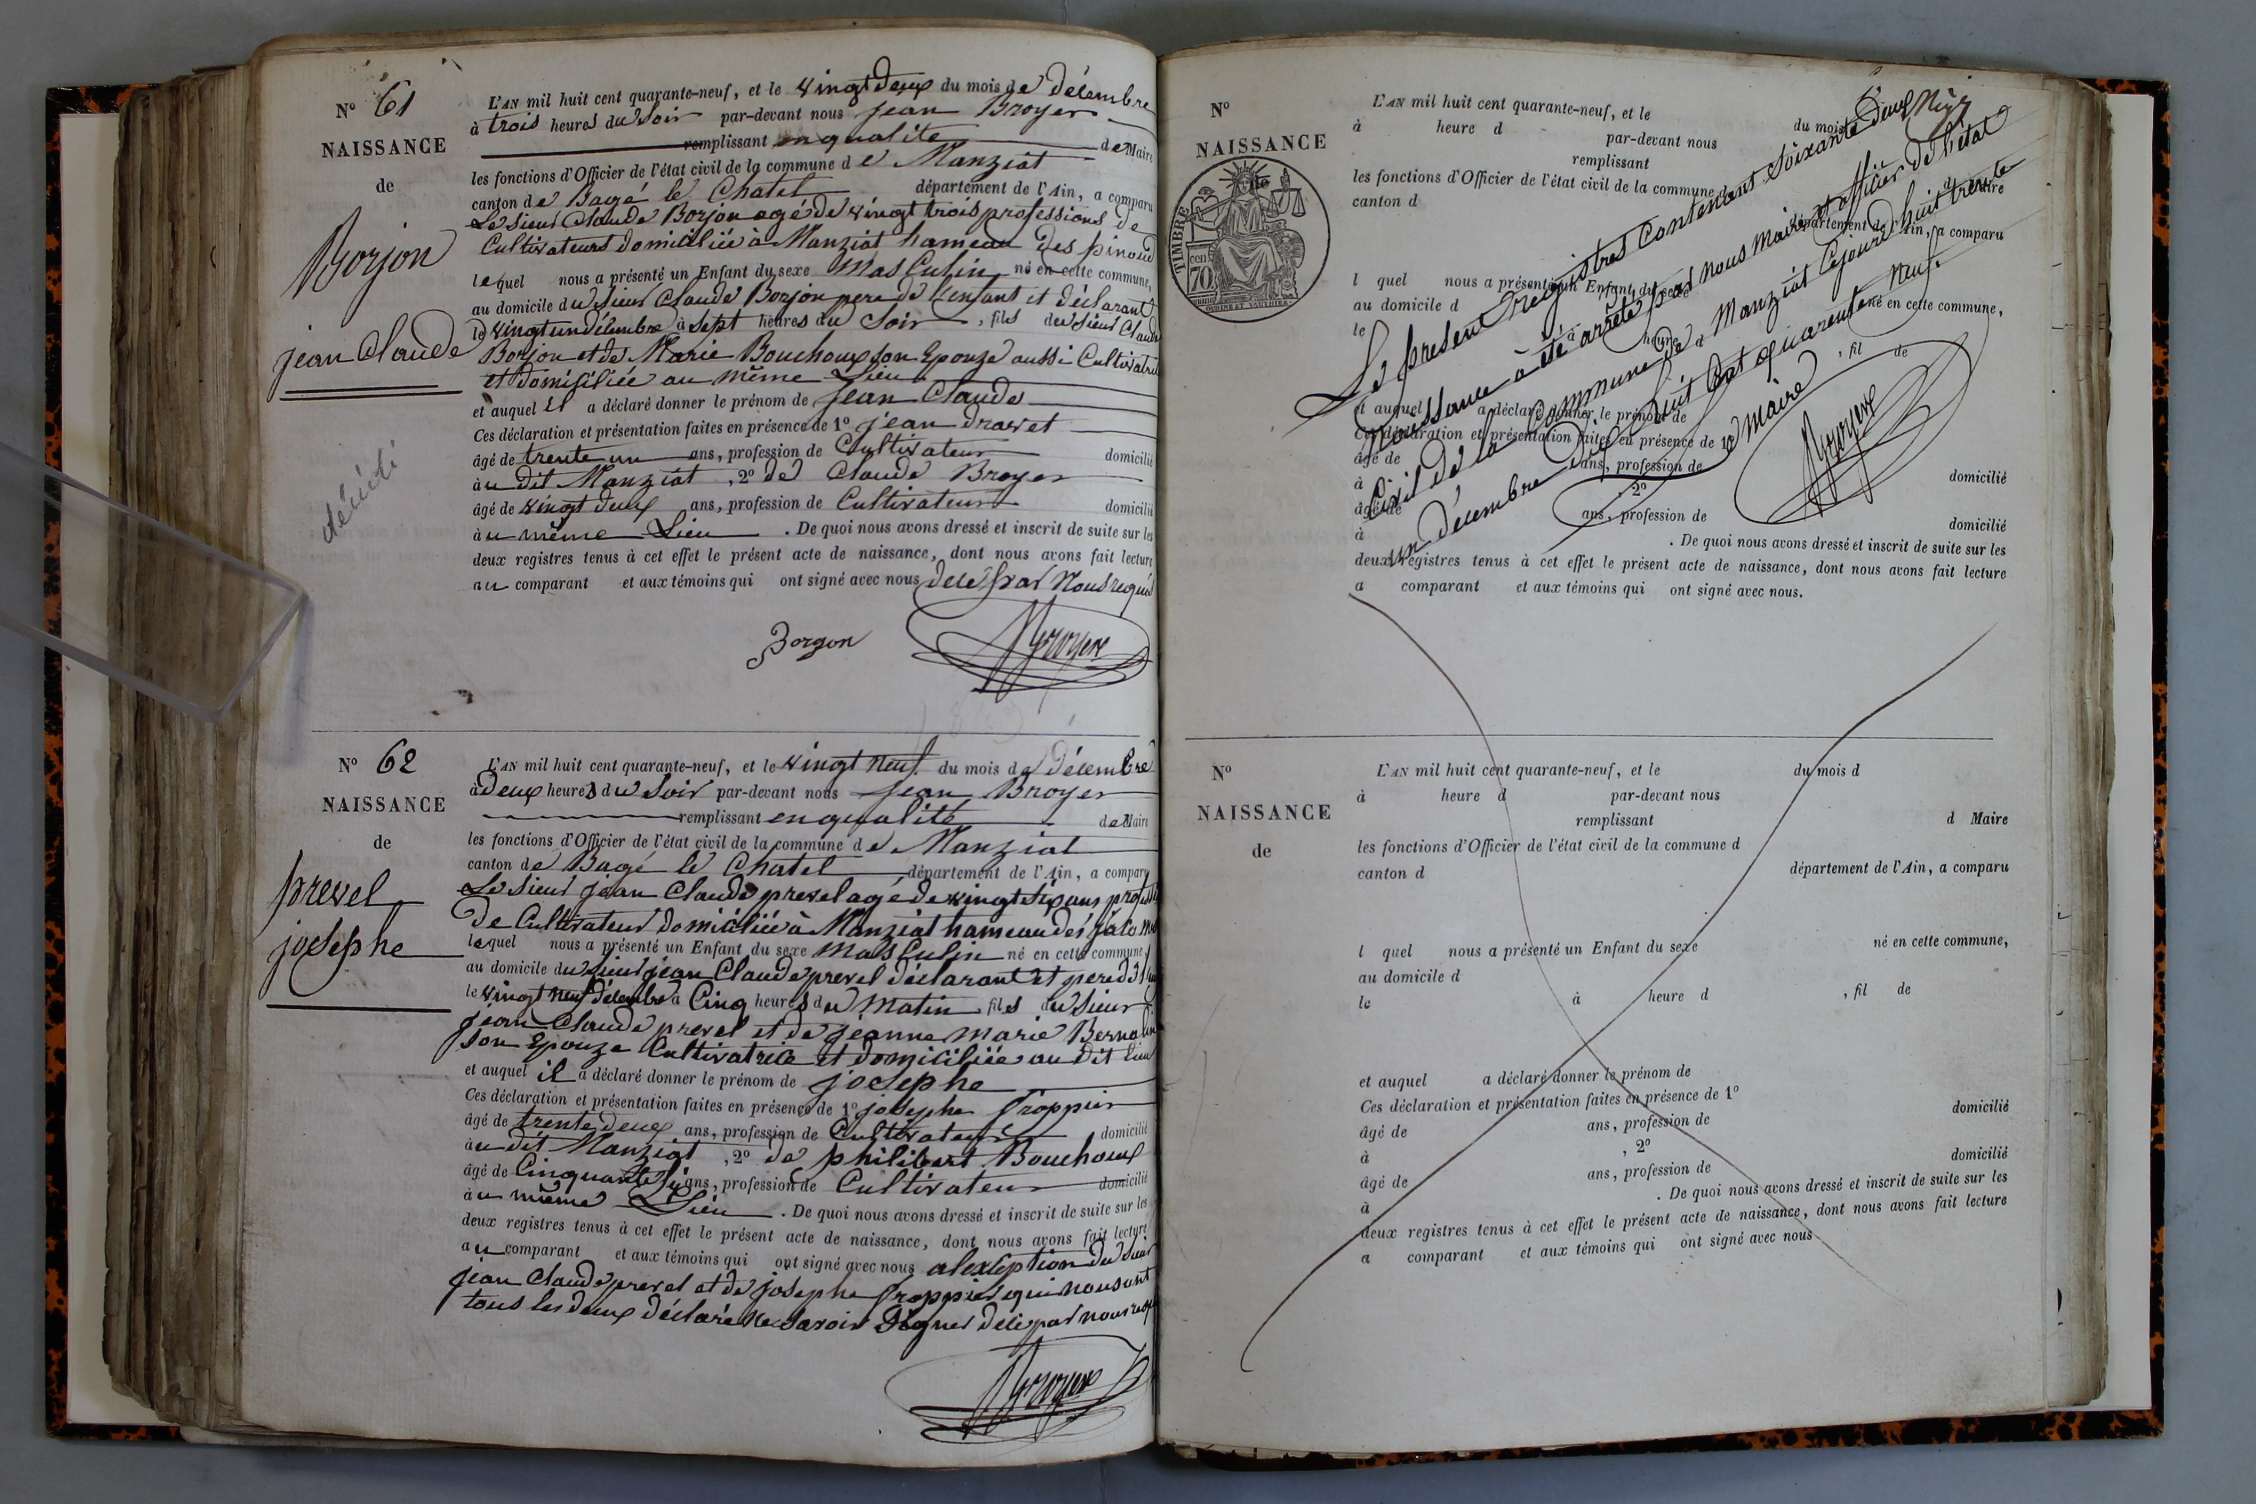 N° 61
NAISSANCE
de
Borjon
jean Claude
décédé
L'AN mil huit cent quarante-neuf, et le vingt deux du mois de décembre
à trois heures du Soir par-devant nous jean Broyer
remplissant en qualité de Maire
les fonctions d'Officier de l'état civil de la commune de Manziat
canton de Bagé le Chatel département de l'Ain, a comparu
Le sieur Claude Borjon agé de vingt trois professions de
Cultivateurs domiciliée à Manziat hameau des pinoud
lequel nous a présenté un Enfant du sexe masculin né en cette commune,
au domicile du sieur Claude Borjon pere de l'enfant et déclarant
le vingt un décembre à sept heures du Soir, fils du sieur Claude
Borjon et de Marie Bouchoux son Epouze aussi Cultivatrice
et domiciliée au même Lieu
et auquel il a déclaré donner le prénom de jean Claude
Ces déclaration et présentation faites en présence de 1° jean
âgé de trente un ans, profession de Cultivateur domicilié
au dit Manziat, 2° de Claude Broyer
âgé de vingt deux ans, profession de Cultivateur domicilié
au même Lieu. De quoi nous avons dressé et inscrit de suite sur les
deux registres tenus à cet effet le présent acte de naissance, dont nous avons fait lecture
au comparant et aux témoins qui ont signé avec nous de ce par nous requis
Borgon Broyer
N° 62
NAISSANCE
de
prevel
josephe
L'AN mil huit cent quarante-neuf, et le vingt neuf du mois de décembre
à deux heures du Soir par-devant nous jean Broyer
remplissant en qualité de Maire
les fonctions d'Officier de l'état civil de la commune de Manziat
canton de Bagé le Chatel département de l'Ain, a comparu
Le sieur jean Claude prevel agé de vingt six ans
de Cultivateur domiciliée à Manziat hameau des
lequel nous a présenté un Enfant du sexe masculin né en cette commune,
au domicile du sieur jean Claude prevel déclarant et pere
le vingt neuf décembre à Cinq heures du matin, fils du sieur
jean Claude prevel et de jeanne marie
son Epouze Cultivatrice et domiciliée au dit lieu
et auquel il a déclaré donner le prénom de josephe
Ces déclaration et présentation faites en présence de 1° josephe
âgé de trente deux ans, profession de Cultivateur domicilié
au dit Manziat, 2° de philibert Bouchoux
âgé de Cinquante ans, profession de Cultivateur domicilié
au même Lieu. De quoi nous avons dressé et inscrit de suite sur les
deux registres tenus à cet effet le présent acte de naissance, dont nous avons fait lecture
au comparant et aux témoins qui ont signé avec nous a lexception du
jean Claude prevel et de josephe qui nous ont
tous les deux déclaré ne savoir signer de ce par nous
Broyer
N°
NAISSANCE
TIMBRE
70 cen
L'AN mil huit cent quarante-neuf, et le du mois
à heure d par-devant nous
remplissant d Maire
les fonctions d'Officier de l'état civil de la commune d
canton d département de l'Ain, a comparu
l quel nous a présenté un Enfant du sexe né en cette commune,
au domicile d
le à heure d, fil de
et auquel a déclaré donner le prénom de
Ces déclaration et présentation faites en présence de 1°
âgé de ans, profession de domicilié
à, 2°
âgé de ans, profession de domicilié
à. De quoi nous avons dressé et inscrit de suite sur les
deux registres tenus à cet effet le présent acte de naissance, dont nous avons fait lecture
a comparant et aux témoins qui ont signé avec nous.
Le present registres Contenant Soixante deux
Naissance à été arrêté par nous maire et officier de l'état
Civil de la Commune de Manziat Cejourd'huit trente
un decembre Dix huit Cent quarente neuf.
le maire
Broyer
N°
NAISSANCE
de
L'AN mil huit cent quarante-neuf, et le du mois d
à heure d par-devant nous
remplissant d Maire
les fonctions d'Officier de l'état civil de la commune d
canton d département de l'Ain, a comparu
l quel nous a présenté un Enfant du sexe né en cette commune,
au domicile d
le à heure d, fil de
et auquel a déclaré donner le prénom de
Ces déclaration et présentation faites en présence de 1°
âgé de ans, profession de domicilié
à, 2°
âgé de ans, profession de domicilié
à. De quoi nous avons dressé et inscrit de suite sur les
deux registres tenus à cet effet le présent acte de naissance, dont nous avons fait lecture
a comparant et aux témoins qui ont signé avec nous